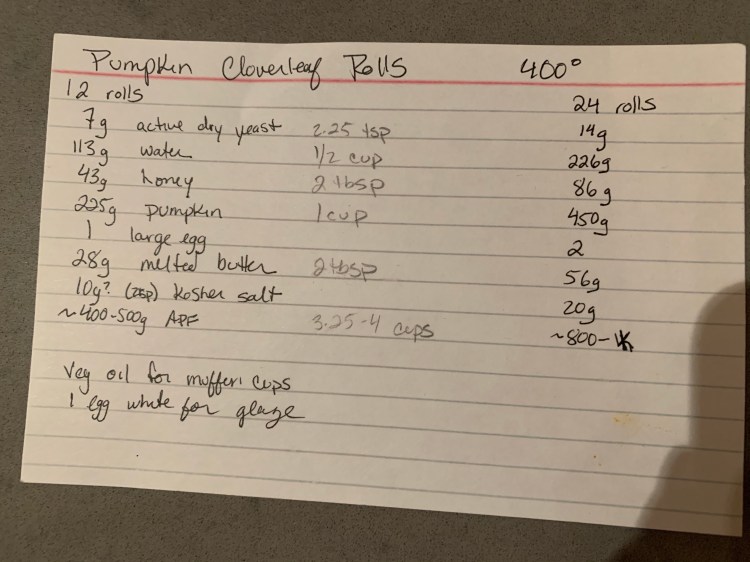 Pumpkin Cloverleaf Rolls 400°
12 rolls 24 rolls
7g active dry yeast 2.25 tsp 14g
113g water 1/2 cup 226g
43g honey 2 tbsp 86g
225g pumpkin 1 cup 450g
1 large egg 2
28g melted butter 2 tbsp 56g
10g? (2tsp) kosher salt 20g
~400-500g APF 3.25-4 cups ~800-1K
Veg oil for muffin cups
1 egg white for glaze